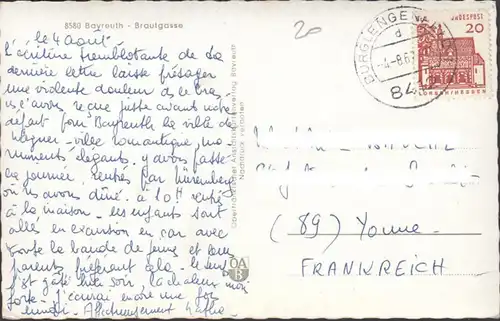 8580 Bayreuth - Brautgasse
20
le 4 août.
L'écriture tremblotante de ta
dernière lettre laisse présager
une violente douleur dans le bras
reçue juste avant notre
départ pour Bayreuth la ville de
Wagner - ville romantique, mo-
numents élégants. y avons passé
la journée, rentrés par Nüremberg
où nous avons dîné. à 10H rentré
à la maison. les enfants sont
allés en excursion en car avec
toute la bande de jeunes et leurs
parents préférant cela. le temps
s'est gâté hier soir. la chaleur moins
forte. J'écrirai encore une fois
Affectueusement
Oberfränkischer Ansichtskartenverlag Bayreuth
Nachdruck verboten
OA
B
BURGLENGENFELD
d
-4-8.67
84
DEUTSCHE BUNDESPOST
20
LORSCH/HESSEN
(89) Yonne
FRANKREICH